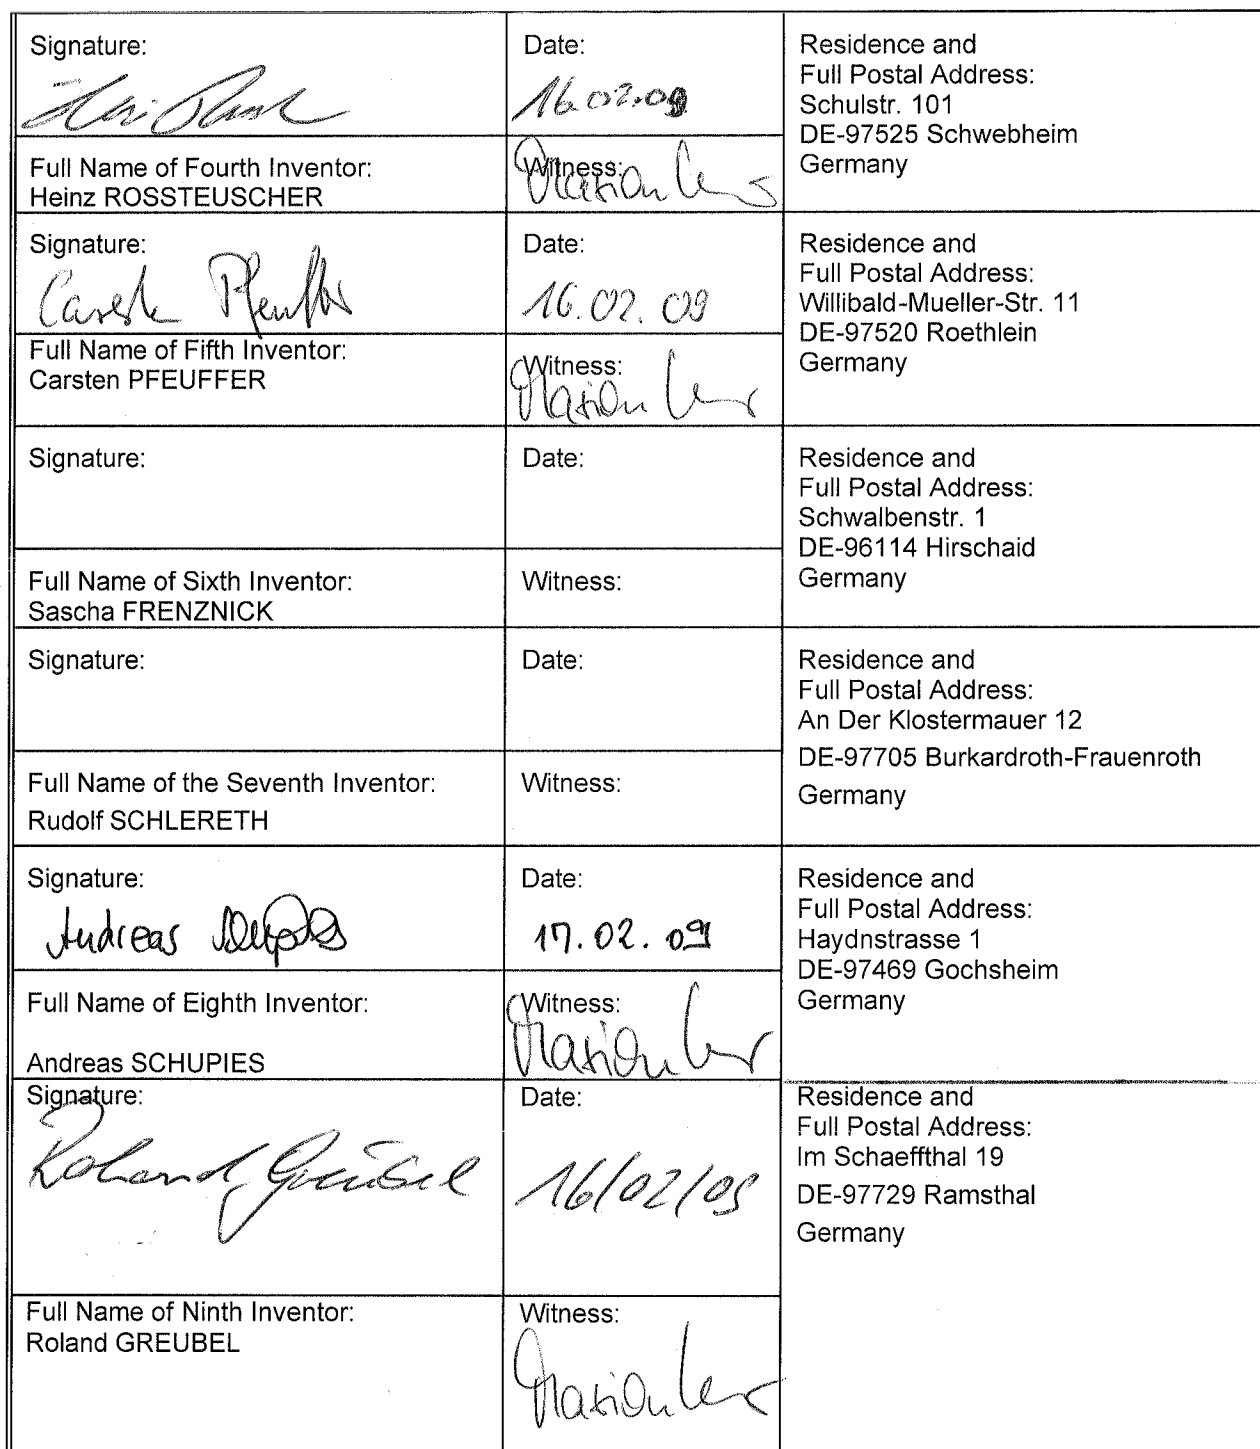 Signature:
Date:
16.02.09
Residence and
Full Postal Address:
Schulstr. 101
DE-97525 Schwebheim
Germany
Full Name of Fourth Inventor:
Heinz ROSSTEUSCHER
Witness:
Marion
Signature:
Carsten Pfeuffer
Date:
16.02.09
Residence and
Full Postal Address:
Willibald-Mueller-Str. 11
DE-97520 Roethlein
Germany
Full Name of Fifth Inventor:
Carsten PFEUFFER
Witness:
Marion
Signature:
Date:
Residence and
Full Postal Address:
Schwalbenstr. 1
DE-96114 Hirschaid
Germany
Full Name of Sixth Inventor:
Sascha FRENZNICK
Witness:
Signature:
Date:
Residence and
Full Postal Address:
An Der Klostermauer 12
DE-97705 Burkardroth-Frauenroth
Germany
Full Name of the Seventh Inventor:
Rudolf SCHLERETH
Witness:
Signature:
Andreas
Date:
17.02.09
Residence and
Full Postal Address:
Haydnstrasse 1
DE-97469 Gochsheim
Germany
Full Name of Eighth Inventor:
Andreas SCHUPIES
Witness:
Marion
Signature:
Roland Greubel
Date:
16/02/09
Residence and
Full Postal Address:
Im Schaeffthal 19
DE-97729 Ramsthal
Germany
Full Name of Ninth Inventor:
Roland GREUBEL
Witness:
Marion